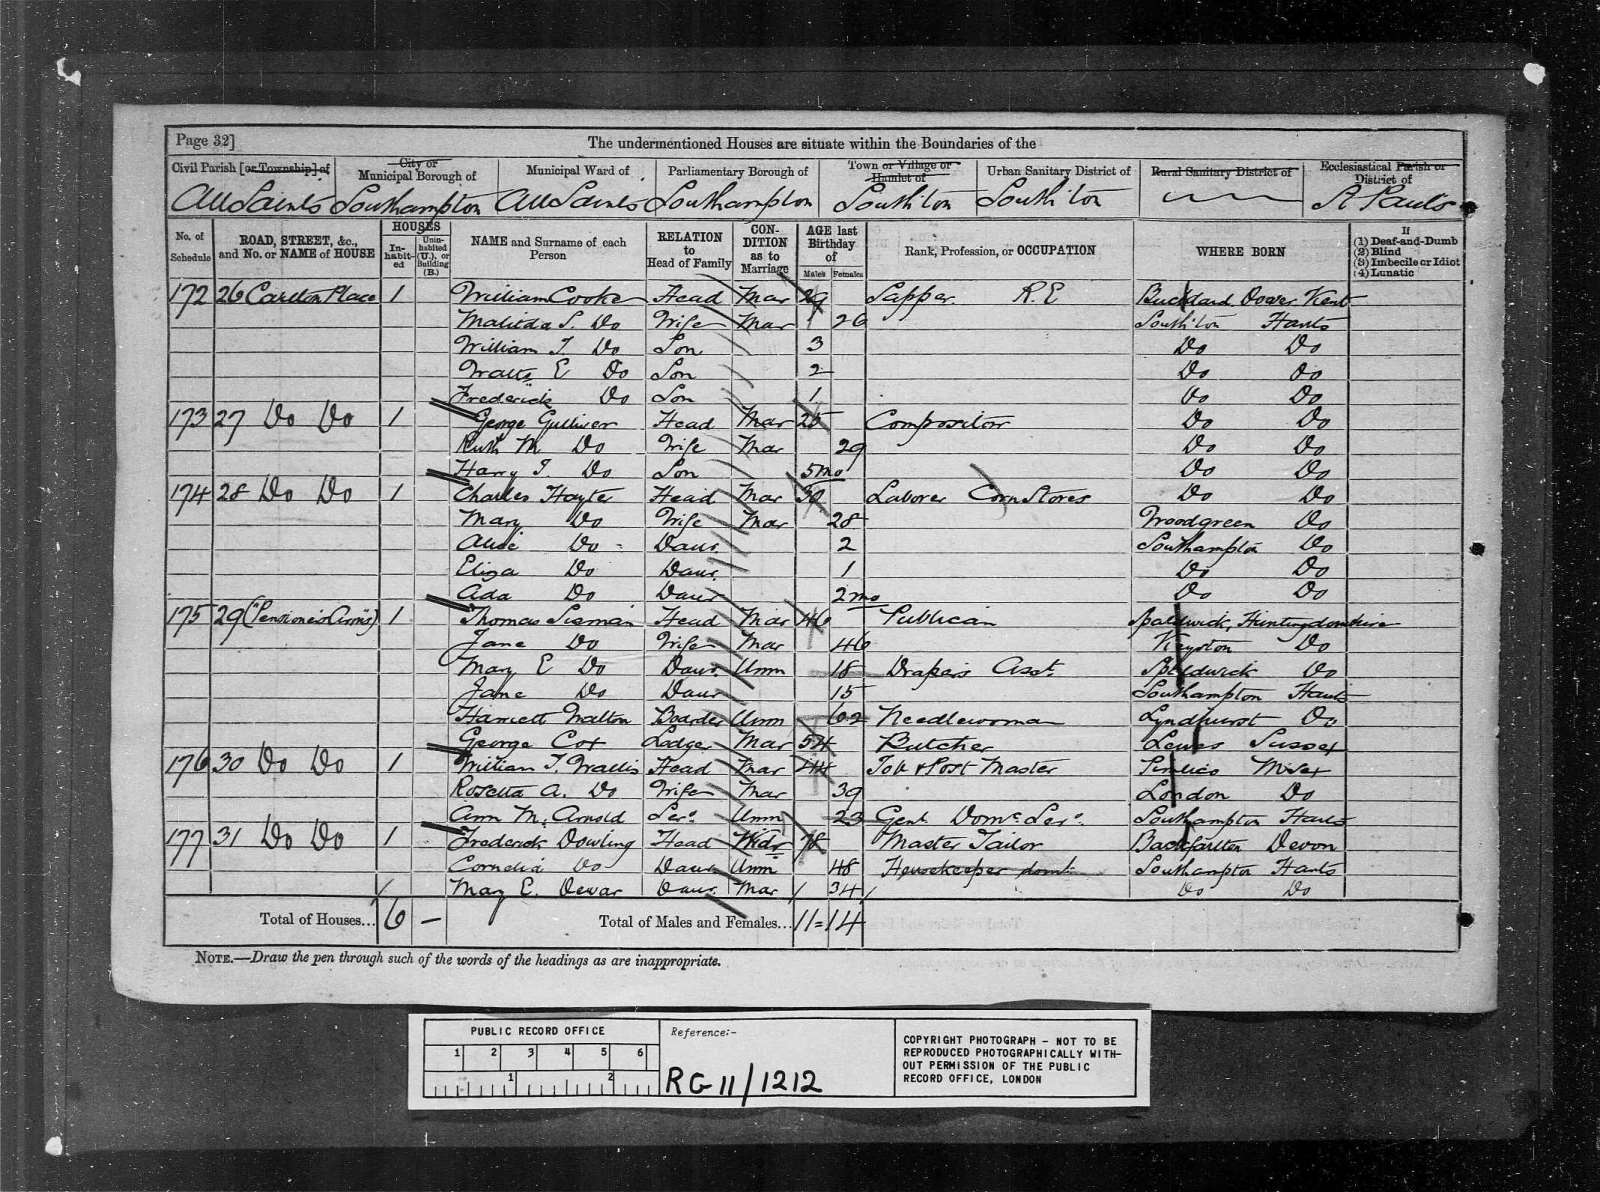 Page 32]
The undermentioned Houses are situate within the Boundaries of the
Civil Parish [or Township] of City or Municipal Borough of Municipal Ward of Parliamentary Borough of Town or Village or Hamlet of Urban Sanitary District of Rural Sanitary District of Ecclesiastical Parish or District of
All Saints Southampton All Saints Southampton South'ton South'ton St Pauls
No. of Schedule ROAD, STREET, &c., and No. or NAME of HOUSE HOUSES In-habit-ed Unin-habited (U.), or Building (B.) NAME and Surname of each Person RELATION to Head of Family CON-DITION as to Marriage AGE last Birthday of Males Females Rank, Profession, or OCCUPATION WHERE BORN If (1) Deaf-and-Dumb (2) Blind (3) Imbecile or Idiot (4) Lunatic
172 26 Carlton Place 1 William Cooke Head Mar 29 Sapper R.E Buckland Dover Kent
Matilda S. Do Wife Mar 26 South'ton Hants
William T. Do Son 3 Do Do
Walter E Do Son 2 Do Do
Frederick Do Son 1 Do Do
173 27 Do Do 1 George Gulliver Head Mar 25 Compositor Do Do
Ruth M Do Wife Mar 29 Do Do
Harry J Do Son 5mo Do Do
174 28 Do Do 1 Charles Hayter Head Mar 30 Laborer Corn Stores Do Do
Mary Do Wife Mar 28 Woodgreen Do
Alice Do Daur. 2 Southampton Do
Eliza Do Daur. 1 Do Do
Ada Do Daur 2mo Do Do
175 29 ("Pensioners Arms") 1 Thomas Sisman Head Mar 46 Publican Spaldwick, Huntingdonshire
Jane Do Wife Mar 46 Keyston Do
Mary E Do Daur. Unm 18 Drapers Asst. Spaldwick Do
Jane Do Daur 15 Southampton Hants
Harriett Walton Boarder Unm 62 Needlewoman Lyndhurst Do
George Cox Lodger Mar 54 Butcher Lewes Sussex
176 30 Do Do 1 William T. Wallis Head Mar 44 Job & Post Master Pimlico M'sex
Rosetta A. Do Wife Mar 39 London Do
Ann M. Arnold Serv. Unm 23 Genl Domc Serv. Southampton Hants
177 31 Do Do 1 Frederick Dowling Head Widr 78 Master Tailor Devon
Cornelia Do Daur Unm 48 Housekeeper domc. Southampton Hants
Mary E. Dewar Daur. Mar 34 Do Do
Total of Houses... 6 — Total of Males and Females... 11=14
NOTE.—Draw the pen through such of the words of the headings as are inappropriate.
PUBLIC RECORD OFFICE
1 2 3 4 5 6
1 2
Reference:-
RG 11/1212
COPYRIGHT PHOTOGRAPH – NOT TO BE
REPRODUCED PHOTOGRAPHICALLY WITH-
OUT PERMISSION OF THE PUBLIC
RECORD OFFICE, LONDON